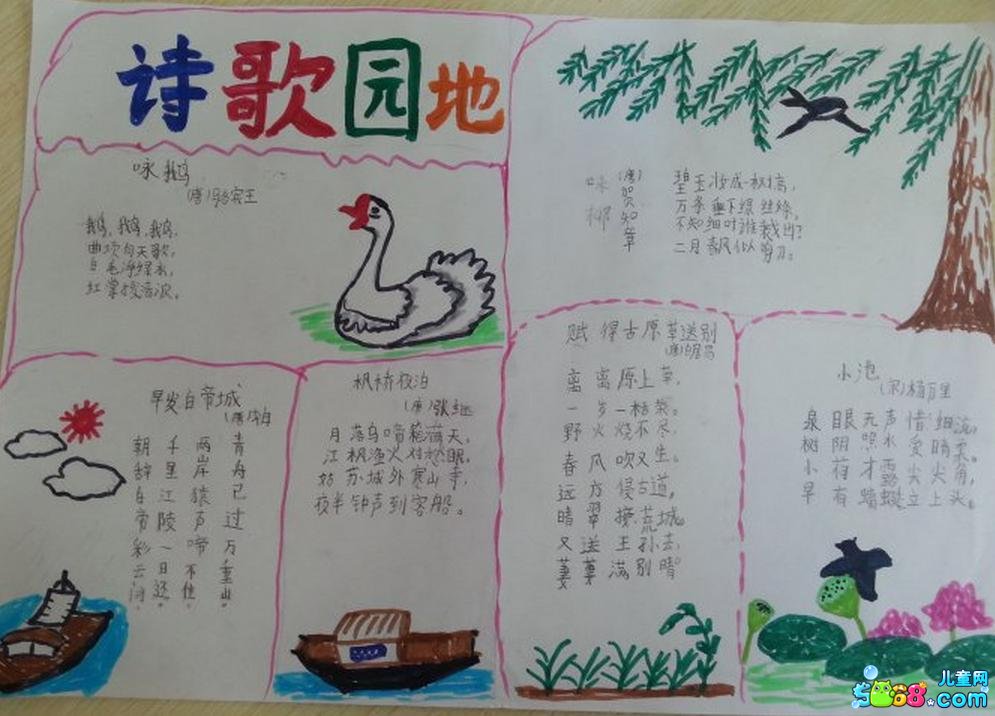 诗歌园地
咏鹅
(唐)骆宾王
鹅，鹅，鹅，
曲项向天歌，
白毛浮绿水，
红掌拨清波。
咏柳
(唐)贺知章
碧玉妆成一树高，
万条垂下绿丝绦，
不知细叶谁裁出？
二月春风似剪刀。
早发白帝城
(唐)李白
朝辞白帝彩云间，
千里江陵一日还。
两岸猿声啼不住，
青舟已过万重山。
枫桥夜泊
(唐)张继
月落乌啼霜满天，
江枫渔火对愁眠，
姑苏城外寒山寺，
夜半钟声到客船。
赋得古原草送别
(唐)白居易
离离原上草，
一岁一枯荣。
野火烧不尽，
春风吹又生。
远方侵古道，
晴翠接荒城。
又送王孙去，
萋萋满别晴。
小池
(宋)杨万里
泉眼无声惜细流，
树阴照水爱晴柔。
小荷才露尖尖角，
早有蜻蜓立上头。
儿童网
5068.com